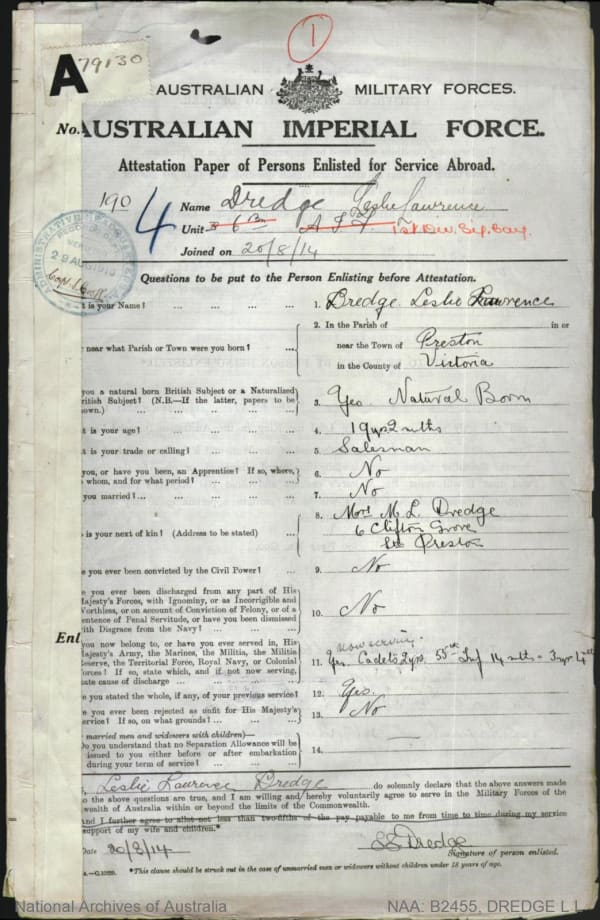 1
A 79130
AUSTRALIAN MILITARY FORCES.
No. AUSTRALIAN IMPERIAL FORCE.
Attestation Paper of Persons Enlisted for Service Abroad.
190
4
Name Dredge Leslie Lawrence
Unit 6 Bn A I F 1st Div. Sig. Coy.
Joined on 20/8/14
29 AUG 1919
Questions to be put to the Person Enlisting before Attestation.
t is your Name? ... ... ... ... 1. Dredge Leslie Lawrence
2. In the Parish of in or
near what Parish or Town were you born? ... near the Town of Preston
in the County of Victoria
you a natural born British Subject or a Naturalized
ritish Subject? (N.B.—If the latter, papers to be
own.) ... ... ... ... 3. Yes Natural Born
t is your age? ... ... ... ... 4. 19 yrs 2 mths
t is your trade or calling? ... ... ... 5. Salesman
you, or have you been, an Apprentice? If so, where,
whom, and for what period? ... ... ... 6. No
you married? ... ... ... ... 7. No
8. Mrs M. L. Dredge
6 Clifton Grove
is your next of kin? (Address to be stated) ... Preston
e you ever been convicted by the Civil Power? ... 9. No
e you ever been discharged from any part of His
ajesty's Forces, with Ignominy, or as Incorrigible and
Worthless, or on account of Conviction of Felony, or of a
entence of Penal Servitude, or have you been dismissed
ith Disgrace from the Navy? ... ... ... 10. No
Enl
you now belong to, or have you ever served in, His
ajesty's Army, the Marines, the Militia, the Militia
eserve, the Territorial Force, Royal Navy, or Colonial
orces? If so, state which, and if not now serving,
ate cause of discharge ... ... ... now serving
11. Yes. Cadets 2 yrs. 55th Inf 14 mths
e you stated the whole, if any, of your previous service? 12. Yes.
e you ever been rejected as unfit for His Majesty's
ervice? If so, on what grounds? ... ... ... 13. No
married men and widowers with children)—
Do you understand that no Separation Allowance will be
issued to you either before or after embarkation
during your term of service? ... ... 14.
Leslie Lawrence Dredge do solemnly declare that the above answers made
o the above questions are true, and I am willing and hereby voluntarily agree to serve in the Military Forces of the
wealth of Australia within or beyond the limits of the Commonwealth.
And I further agree to allot not less than two-fifths of the pay payable to me from time to time during my service
support of my wife and children.*
Date 20/8/14 L L Dredge
Signature of person enlisted.
*This clause should be struck out in the case of unmarried men or widowers without children under 18 years of age.
National Archives of Australia NAA: B2455, DREDGE L L